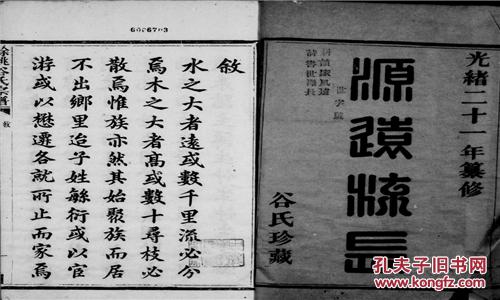 光緒二十一年纂修
源遠流長
谷氏珍藏
6006703
敘
水之大者遠或數千里流必分
焉木之大者高或數十尋枝必
散焉惟族亦然其始聚族而居
不出鄉里迨子姓緐衍或以官
游或以懋遷各就所止而家焉
餘姚谷氏宗譜
敘
孔夫子旧书网
www.kongfz.com